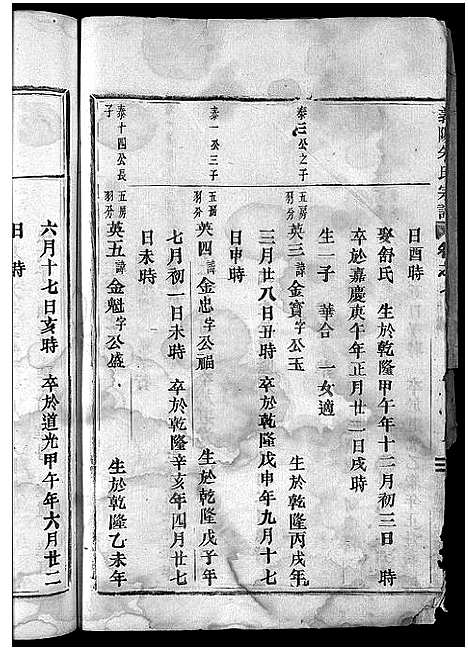 義陽朱氏宗譜
日酉時
娶舒氏 生於乾隆甲午年十二月初三日 時
卒於嘉慶庚午年正月廿二日戌時
生一子 華合 一女適
泰三公之子 五房羽分 英三諱金寶字公玉 生於乾隆丙戌年
三月廿八日丑時 卒於乾隆戊申年九月十七
日申時
泰一公三子 五房羽分 英四諱金忠字公福 生於乾隆戊子年
七月初一日未時 卒於乾隆辛亥年四月廿七
日未時
泰十四公長子 五房羽分 英五諱金魁字公盛 生於乾隆乙未年
六月十七日亥時 卒於道光甲午年六月廿二
日 時